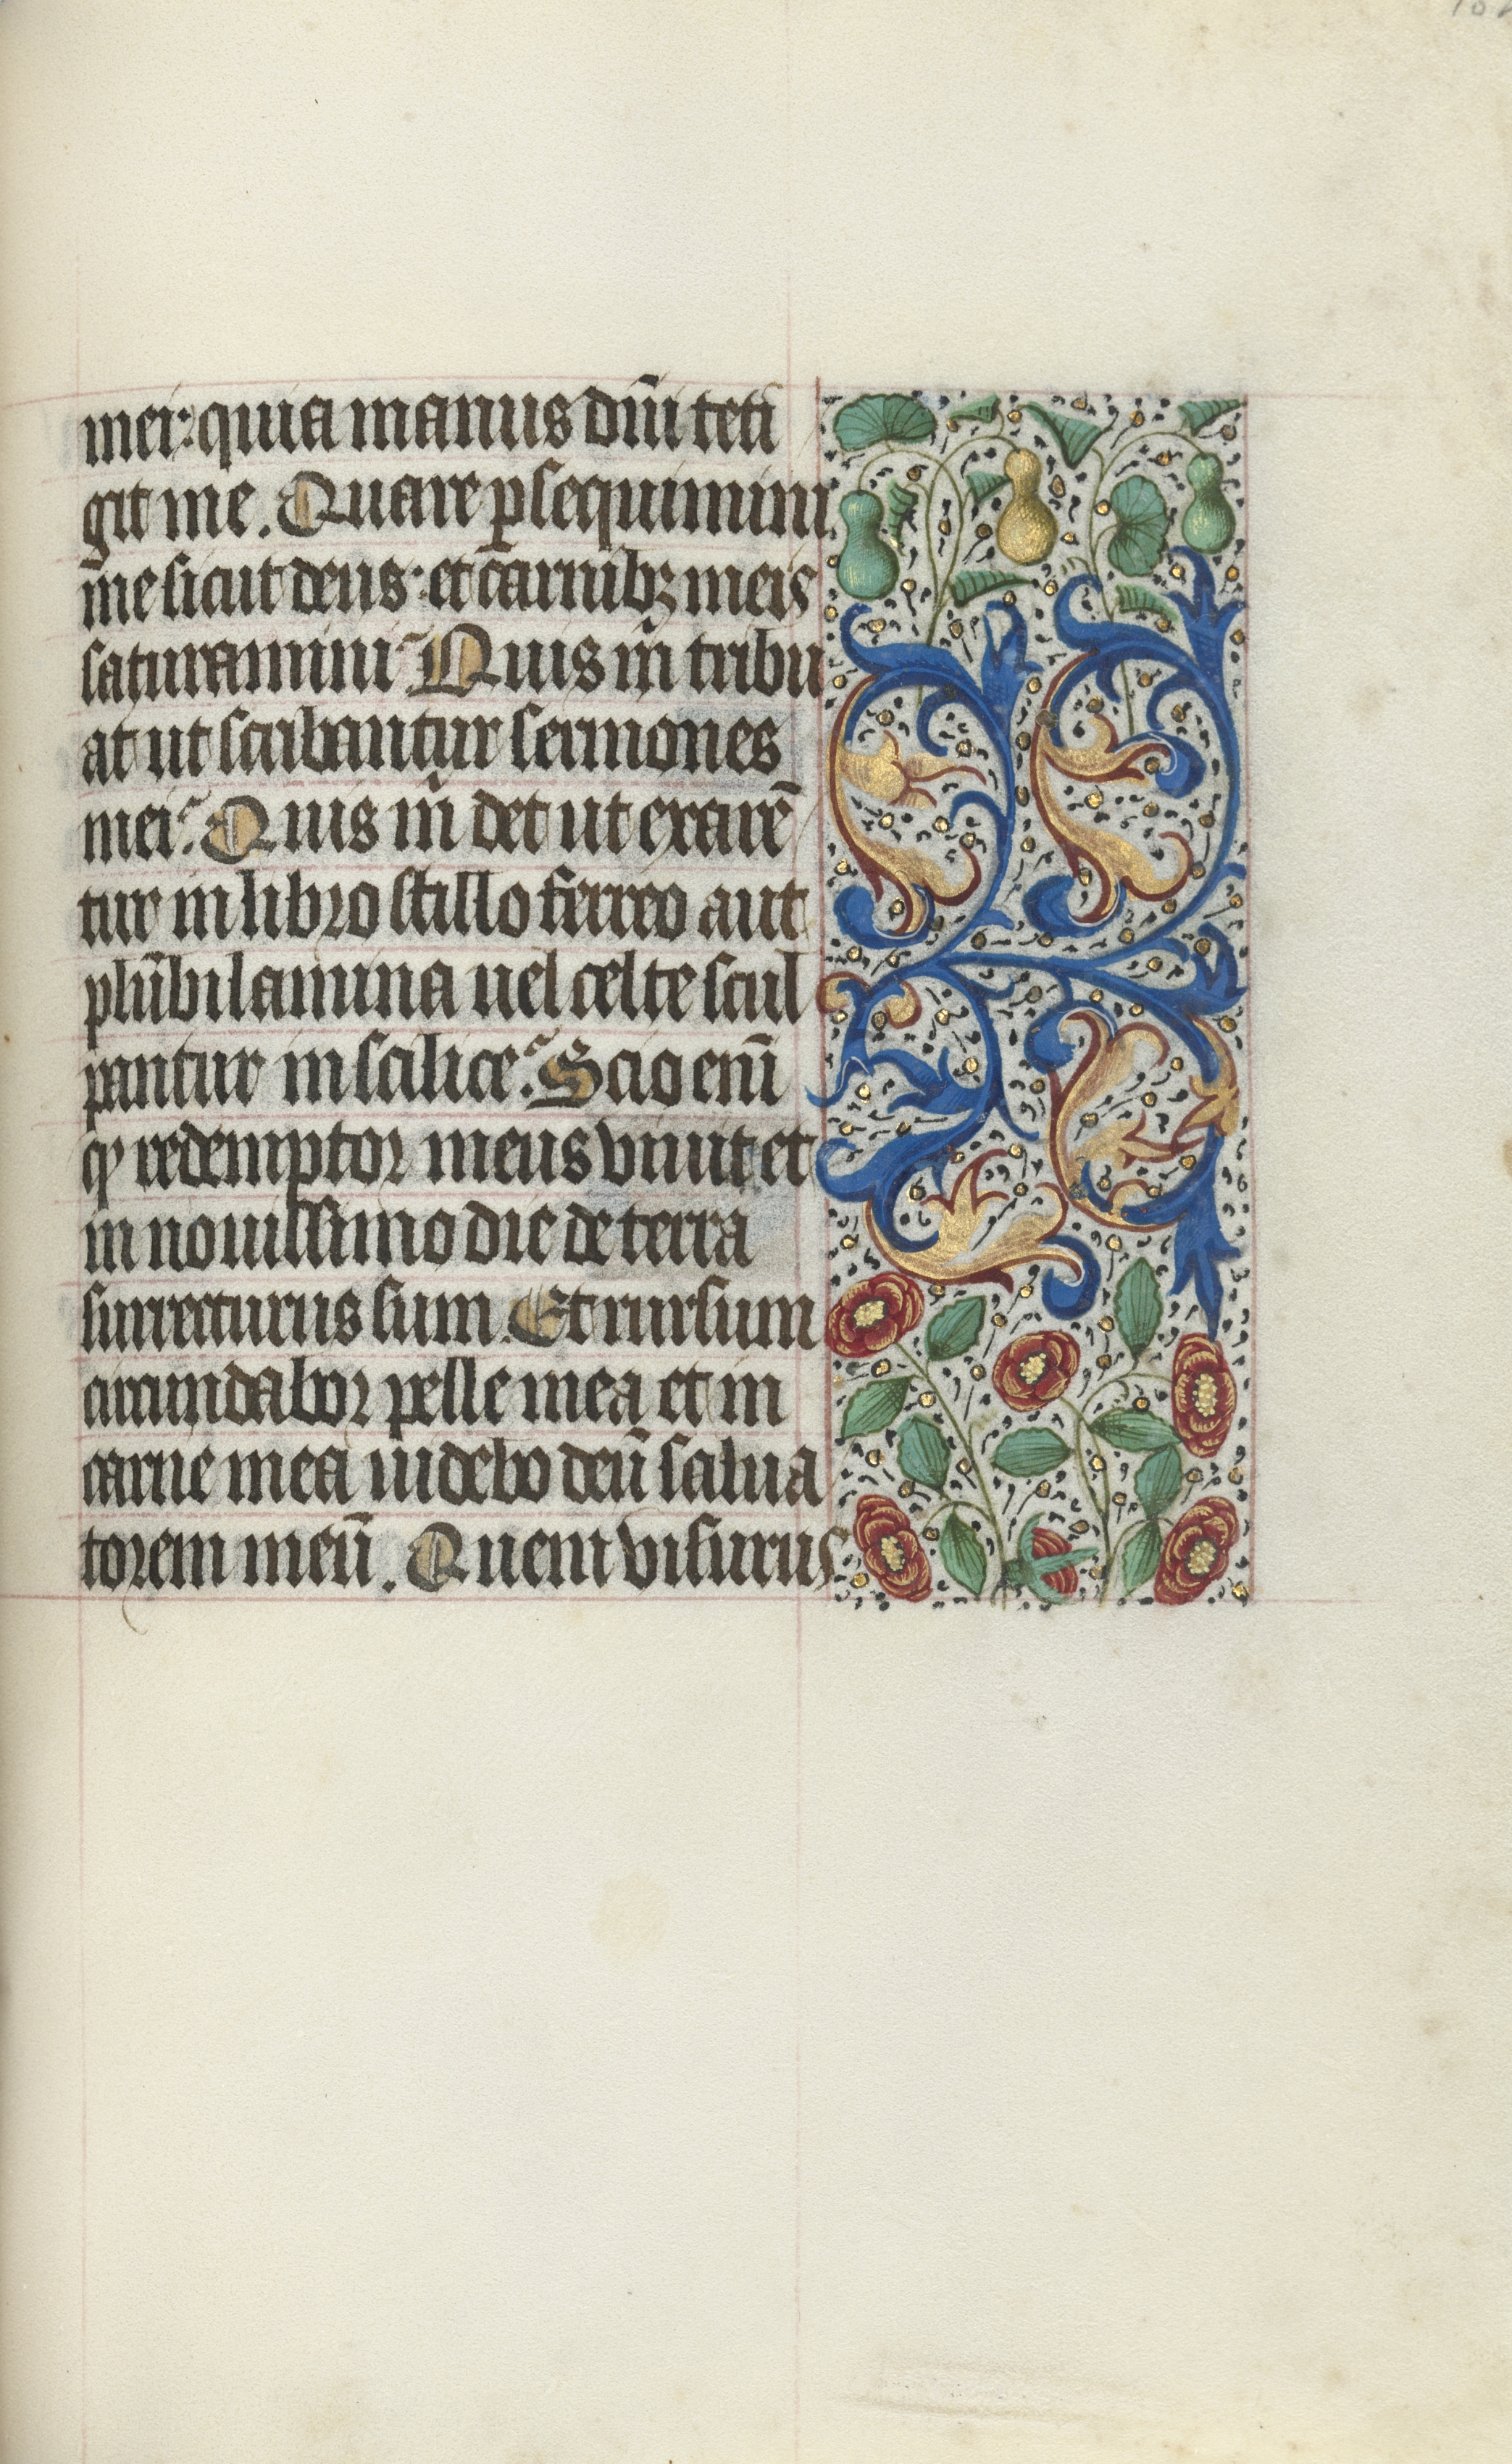 mei: quia manus dn̄i teti
git me. Quare ꝑsequimini
me sicut deus: et carnibꝫ meis
saturamini? Quis m̄ tribu
at ut scribantur sermones
mei? Quis m̄ det ut exarē
tur in libro stillo ferreo aut
plūbi lamina uel celte scul
pantur in scilice? Scio enī
ꝙ redemptor meus viuit et
in nouissimo die de terra
surrecturus sum. Et rursum
circundabor pelle mea et in
carne mea uidebo deū salua
torem meū. Quem visurus